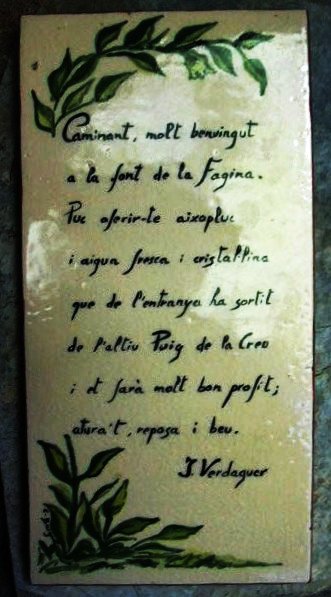 Caminant, molt benvingut
a la font de la Fagina.
Puc oferir-te aixopluc
i aigua fresca i cristal·lina
que de l'entranya ha sortit
de l'altiu Puig de la Creu
i et farà molt bon profit;
atura't, reposa i beu.
J. Verdaguer